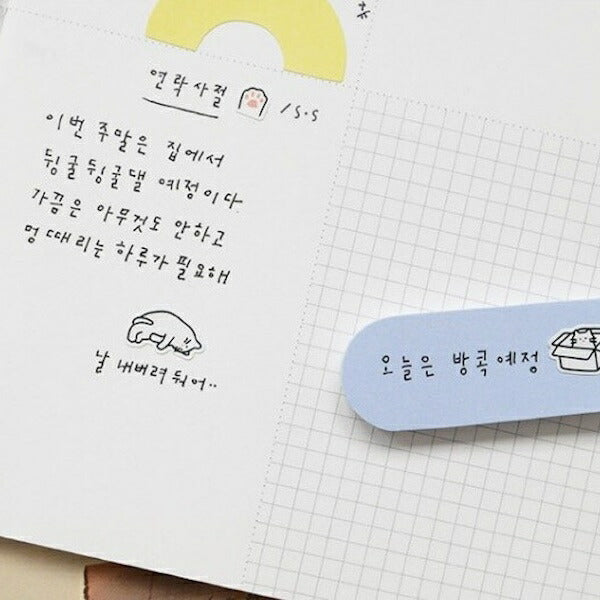 연락사절 / S.S
이번 주말은 집에서
뒹굴뒹굴댈 예정이다
가끔은 아무것도 안하고
멍 때리는 하루가 필요해
날 내버려 둬어..
오늘은 방콕예정